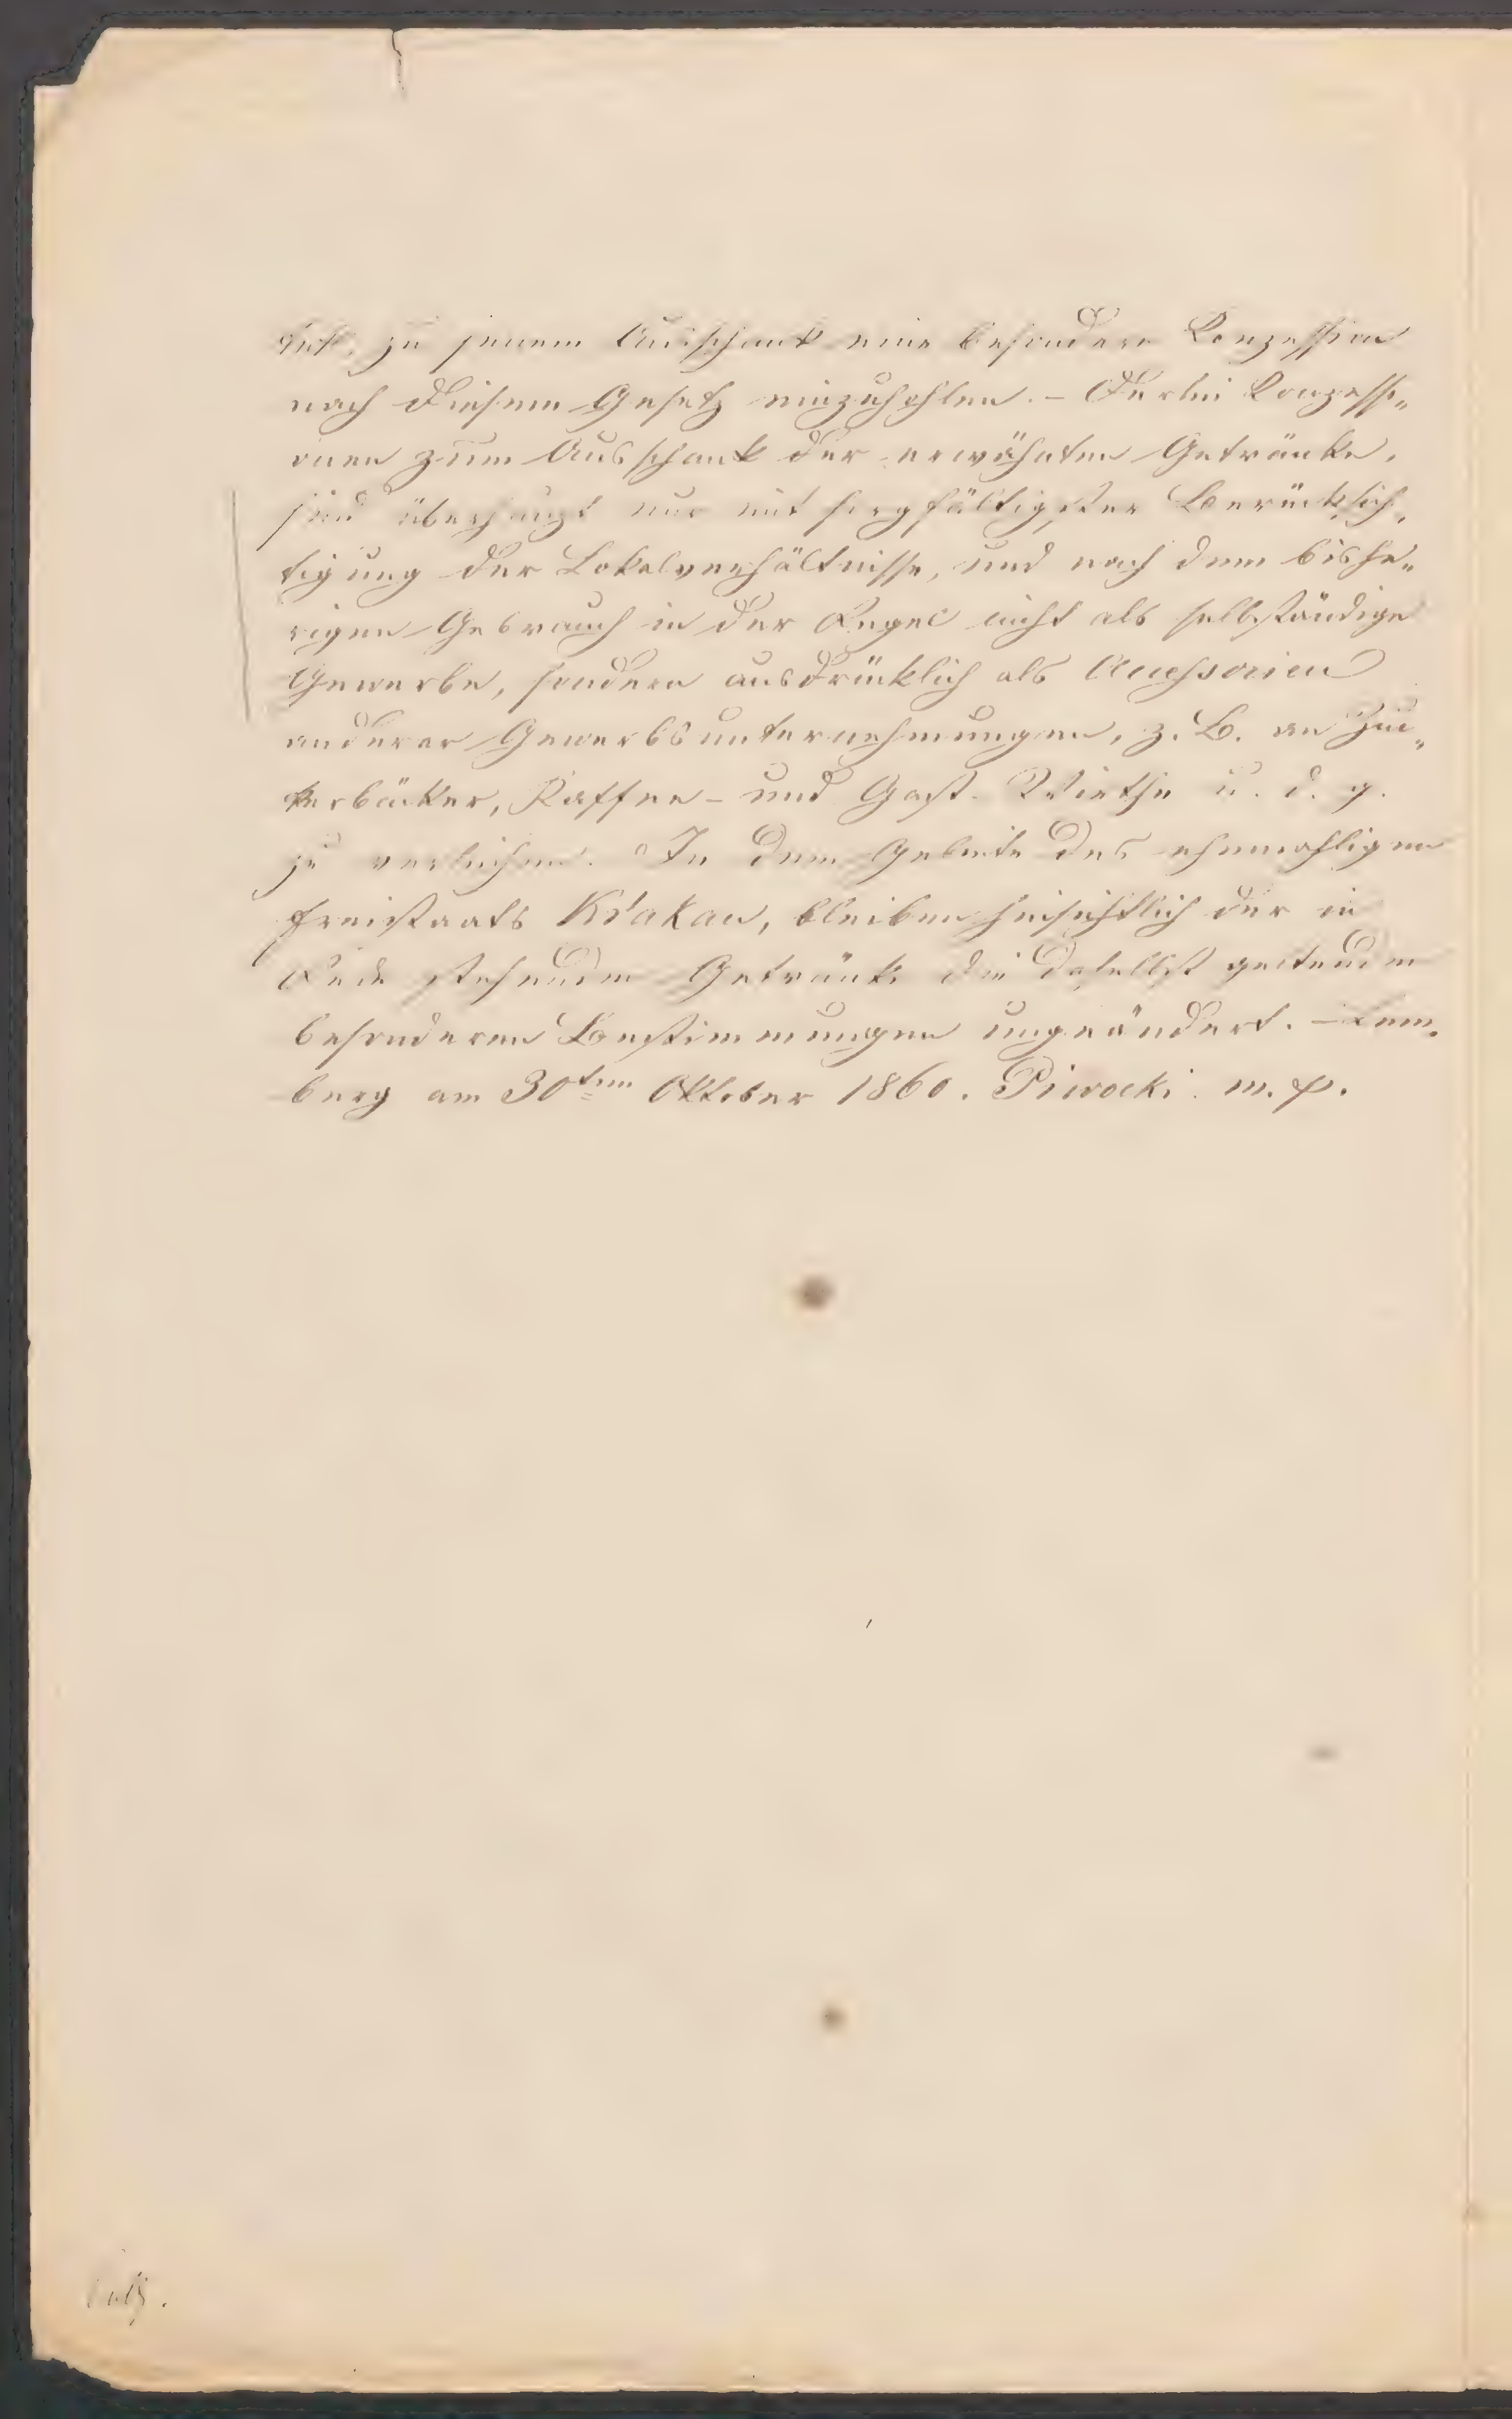 tet, zu jenem Ausschank eine besondere Konzession
nach diesem Gesetz einzuhohlen. – Derlei Konzessi„
onen zum Ausschank der erwähnten Getränke,
sind überhaupt nur mit sorgfältigster Berücksich„
tigung der Lokalverhältnisse, und nach dem bishe„
rigen Gebrauch in der Regel nicht als selbständige
Gewerbe, sondern ausdrücklich als Accessorien
anderer Gewerbsunternehmungen, z. B. an Zuc„
kerbäcker, Kaffee- und Gast-Wirthe u. d. g.
zu verleihen. In dem Gebiete des ehemahligen
Freistaats Krakau, bleiben hinsichtlich der in
Rede stehenden Getränke die daselbst geltenden
besonderen Bestimmungen ungeändert. – Lem„
berg am 30ten Oktober 1860. Piwocki. m. p.